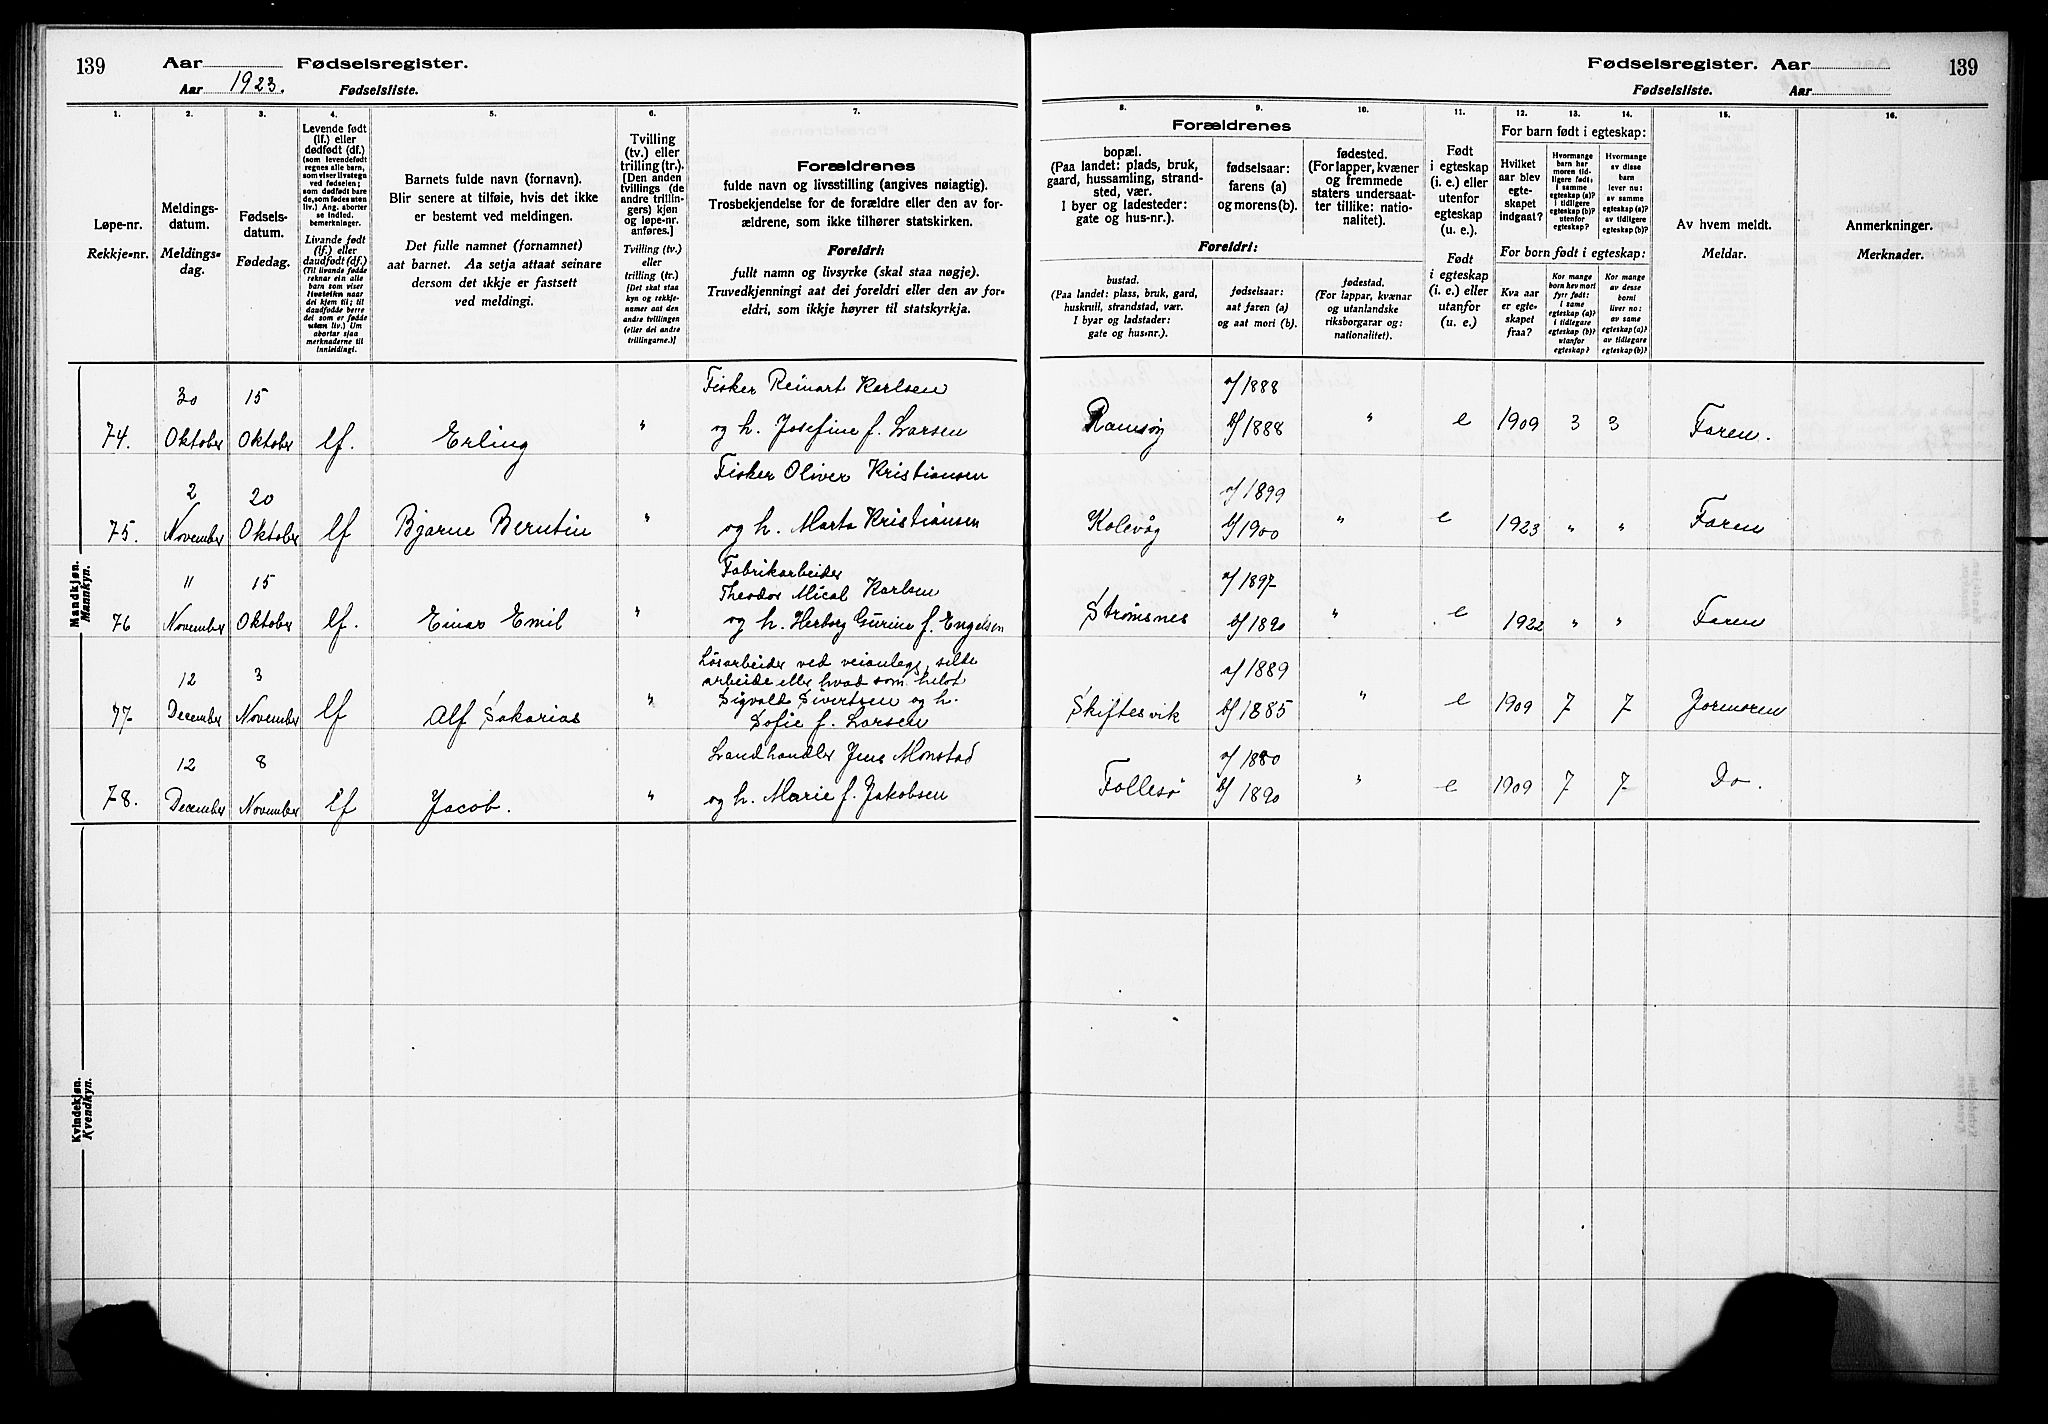 139
Aar
Fødselsregister.
Aar 1923.
Fødselsliste.
Fødselsregister. Aar
139
Fødselsliste.
Aar
1.
Løpe-nr.
Rekkje-nr.
2.
Meldings-
datum.
Meldings-
dag.
3.
Fødsels-
datum.
Fødedag.
4.
Levende født
(lf.) eller
dødfødt (df.)
(som levendefødt
regnes alle barn,
som viser livstegn
ved fødselen;
som dødfødt bare
de, som fødes uten
liv.) Ang. aborter
se indled.
bemerkninger.
Livande født
(lf.) eller
daudfødt (df.)
(Til livande fødde
reknar ein alle
barn som viser
livsteikn naar
dei kjem til; til
daudfødde berre
dei som er fødde
utan liv.) Um
abortar sjaa
merknaderne til
innleidingi.
5.
Barnets fulde navn (fornavn).
Blir senere at tilføie, hvis det ikke
er bestemt ved meldingen.
Det fulle namnet (fornamnet)
aat barnet. Aa setja attaat seinare
dersom det ikkje er fastsett
ved meldingi.
6.
Tvilling
(tv.) eller
trilling (tr.).
[Den anden
tvillings (de
andre trillin-
gers) kjøn
og løpe-nr.
anføres.]
Tvilling (tv.)
eller
trilling (tr.)
[Det skal staa
kyn og rekkje-
numer aat den
andre tvillingen
(eller dei andre
trillingarne.)]
7.
Forældrenes
fulde navn og livsstilling (angives nøiagtig).
Trosbekjendelse for de forældre eller den av for-
ældrene, som ikke tilhører statskirken.
Foreldri:
fullt namn og livsyrke (skal staa nøgje).
Truvedkjenningi aat dei foreldri eller den av for-
eldri, som ikkje høyrer til statskyrkja.
Forældrenes
8.
bopæl.
(Paa landet: plads, bruk,
gaard, hussamling, strand-
sted, vær.
I byer og ladesteder:
gate og hus-nr.).
9.
fødselsaar:
farens (a)
og morens (b).
10.
fødested.
(For lapper, kvæner
og fremmede
staters undersaat-
ter tillike: natio-
nalitet).
Foreldri:
bustad.
(Paa landet: plass, bruk, gard,
huskrull, strandstad, vær.
I byar og ladstader:
gate og hus-nr.).
fødselsaar:
aat faren (a)
og aat mori (b).
fødestad.
(For lappar, kvænar
og utanlandske
riksborgarar og:
nationalitet).
11.
Født
i egteskap
(i. e.) eller
utenfor
egteskap
(u. e.).
Født
i egteskap
(i. e.) eller
utanfor
(u. e.).
12.
13.
14.
For barn født i egteskap:
Hvilket
aar blev
egte-
skapet
indgaat?
Hvormange
barn har
moren tid-
ligere født:
i samme
egteskap (a)?
i tidligere
egteskap (b)?
utenfor
egteskap?
Hvormange
av disse
barn
lever nu:
av samme
egteskap (a)?
av tidligere
egteskap (b)?
For born født i egteskap:
Kva aar
er egte-
skapet
fraa?
Kor mange
born hev mori
fyrr født:
i same
egteskap (a)?
i tidlegare
egteskap (b)?
utanfor
egteskap?
Kor mange
av desse
borni
liver no:
av same
egteskap (a)?
av tidlegare
egteskap (b)?
15.
Av hvem meldt.
Meldar.
16.
Anmerkninger.
Merknader.
Mandkjøn.
Mannkyn.
74. 30 Oktober 15 Oktober lf. Erling " Fisker Reinart Karlsen
og h. Josefine f. Larsen Ramsøy a/ 1888 b/ 1888 " e 1909 3 3 Faren.
75. 2 November 20 Oktober lf Bjarne Berntin " Fisker Oliver Kristiansen
og h. Marta Kristiansen Kolevåg a/ 1899 b/ 1900 " e 1923 " " Faren
76 11 November 15 Oktober lf. Einar Emil " Fabrikarbeider
Theodor Mical Karlsen
og h. Herborg Gurine f. Engelsen Strømsnes a/ 1897 b/ 1890 " e 1922 " " Faren
77 12 December 3 November lf Alf Sakarias " Løsarbeider ved veianlegg, silde
arbeide eller hvad som helst
Sigvald Sivertsen og h.
Sofie f. Larsen Skiftesvik a/ 1889 b/ 1885 " e 1909 7 7 Jormoren
78. 12 December 8 November lf Jacob. " Landhandler Jens Monstad
og h. Marie f. Jakobsen Follesø a/ 1880 b/ 1890 " e 1909 7 7 Do.
Kvindekjøn.
Kvendkyn.